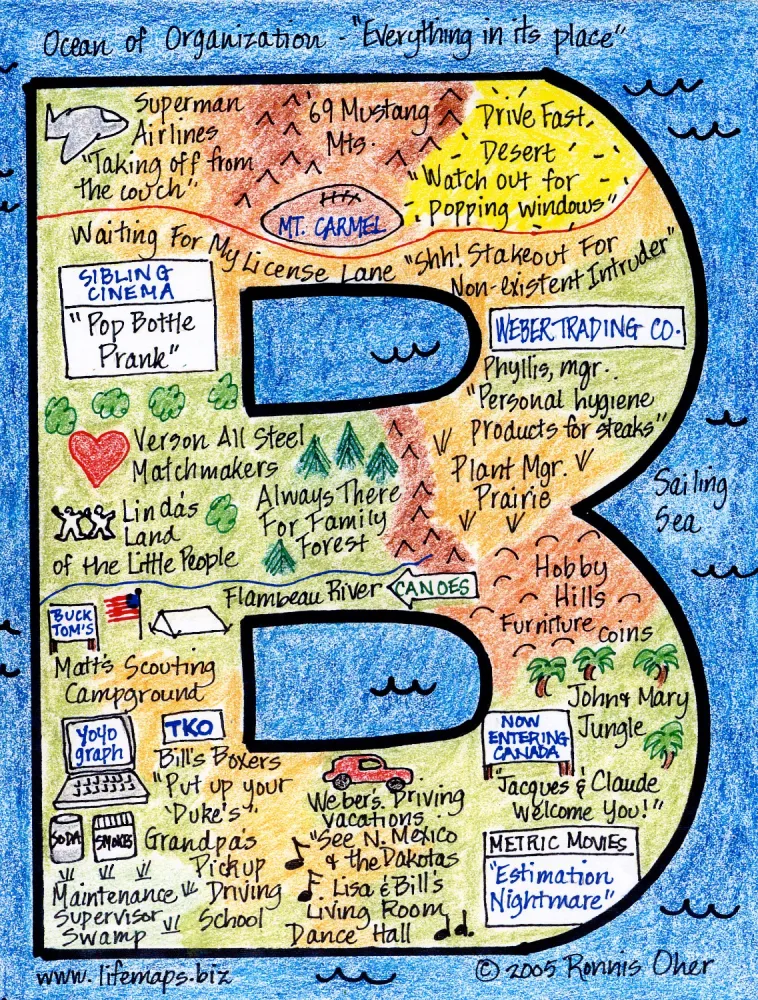 Ocean of Organization - "Everything in its place"
Superman
Airlines
"Taking off from
the couch"
'69 Mustang
Mts.
Drive Fast
Desert
"Watch out for
popping windows"
MT. CARMEL
Waiting For My License Lane
"Shh! Stakeout For
Non-existent Intruder"
SIBLING
CINEMA
"Pop Bottle
Prank"
WEBER TRADING CO.
Phyllis, mgr.
"Personal hygiene
products for steaks"
Verson All Steel
Matchmakers
Plant Mgr.
Prairie
Sailing
Sea
Linda's
Land
of the Little People
Always There
For Family
Forest
Flambeau River
CANOES
Hobby
Hills
Furniture
coins
BUCK
TOM'S
Matt's Scouting
Campground
John & Mary
Jungle
NOW
ENTERING
CANADA
"Jacques & Claude
Welcome You!"
yoyo
graph
TKO
Bill's Boxers
"Put up your
'Duke's'"
Weber's Driving
Vacations
"See N. Mexico
& the Dakotas
SODA
SMOKES
Grandpa's
Pickup
Driving
School
Maintenance
Supervisor
Swamp
Lisa & Bill's
Living Room
Dance Hall
METRIC MOVIES
"Estimation
Nightmare"
www.lifemaps.biz
© 2005 Ronnis Oher